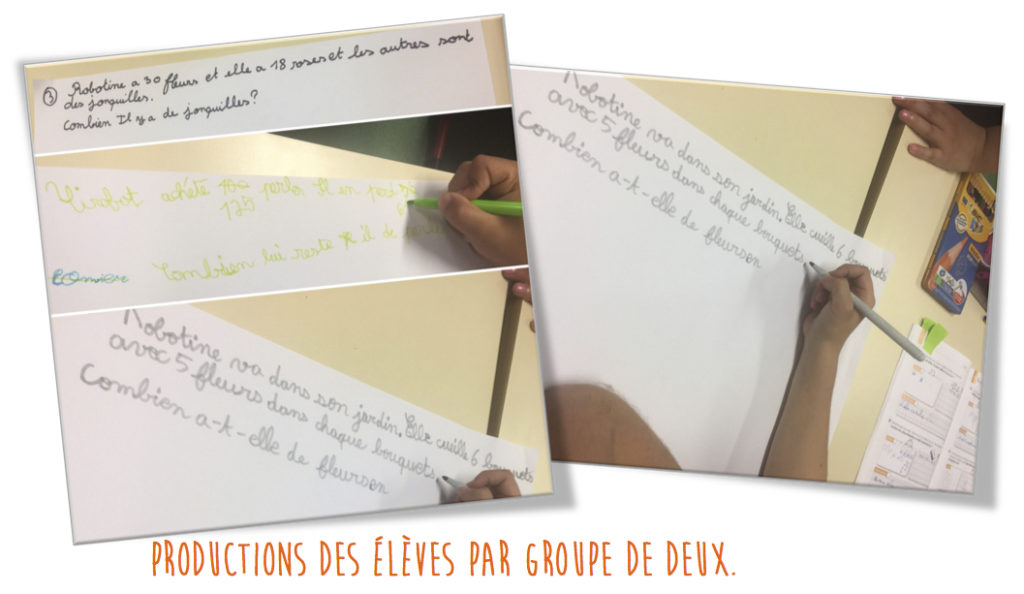 ③ Robotine a 30 fleurs et elle a 18 roses et les autres sont
des jonquilles.
Combien Il y a de jonquilles?
Virobot achète 100 perles Il en perd
125
Combien lui reste il de
Robotine va dans son jardin. Elle cuille 6 bouquets
avoc 5 fleurs dans chaque bouquots.
Combien a-t-elle de fleurs en
Robotine va dans son jardin. Elle cuille 6 bouquots
avoc 5 fleurs dans chaque bouquots.
Combien a-t-elle de fleurs en
PRODUCTIONS DES ÉLÈVES PAR GROUPE DE DEUX.